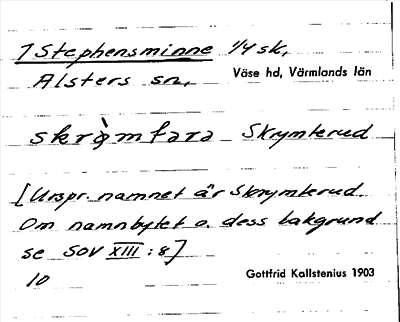 1 Stephensminne 1/4 sk,
Alsters sn, Väse hd, Värmlands län
skrò̀mtara Skrymterud
[Urspr. namnet är Skrymterud.
Om namnbytet o. dess bakgrund
se SOV XIII : 8]
10 Gottfrid Kallstenius 1903